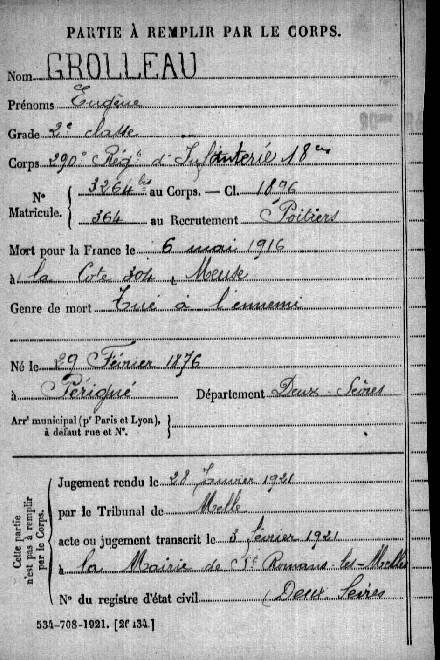 PARTIE À REMPLIR PAR LE CORPS.
Nom GROLLEAU
Prénoms Eugène
Grade 2e classe
Corps 290e Rég. d'Infanterie 18e
N° Matricule. { 3264 bis au Corps. — Cl. 1896
364 au Recrutement Poitiers
Mort pour la France le 6 mai 1916
à la Cote 304, Meuse
Genre de mort Tué à l'ennemi
Né le 29 Février 1876
à Périgné Département Deux-Sèvres
Arrt municipal (pr Paris et Lyon),
à défaut rue et N°.
Cette partie n'est pas à remplir par le Corps.
Jugement rendu le 28 Janvier 1921
par le Tribunal de Melle
acte ou jugement transcrit le 3 février 1921
à la Mairie de St Romans-les-Melle
N° du registre d'état civil (Deux Sèvres
534-708-1921. [26434.]